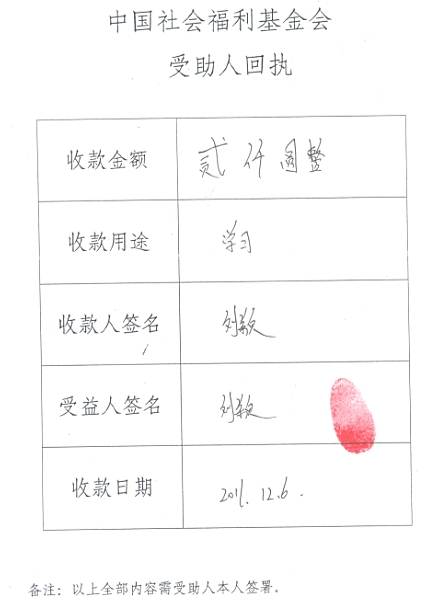 中国社会福利基金会
受助人回执
收款金额 贰仟圆整
收款用途 学习
收款人签名
受益人签名
收款日期 2016.12.6.
备注：以上全部内容需受助人本人签署.